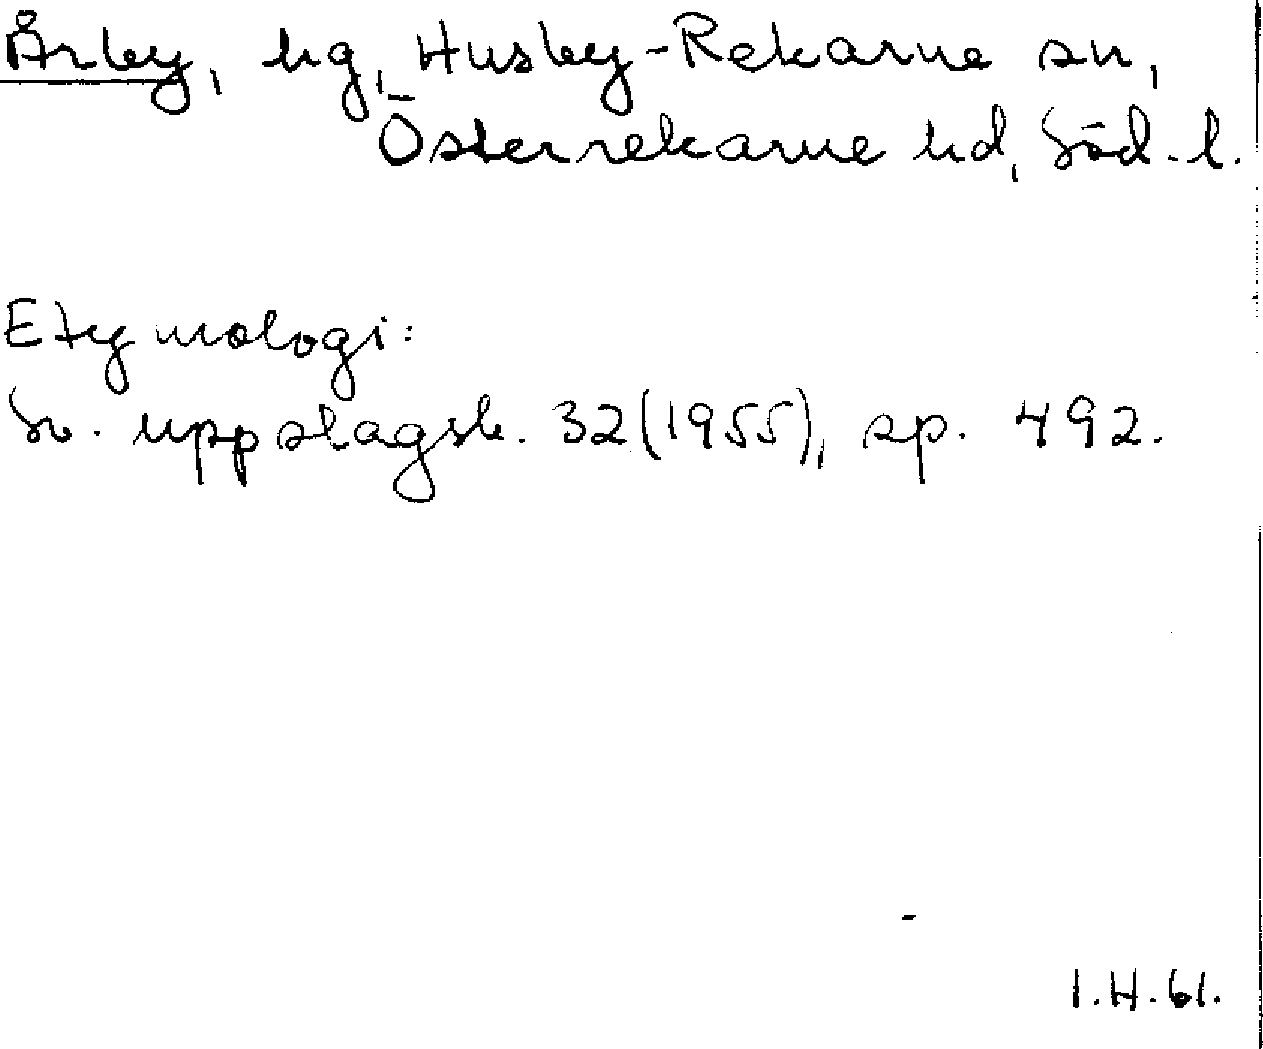 Årby, hg, Husby-Rekarne sn,
Österrekarne hd, Söd. l.
Etymologi:
Sv. uppslagsb. 32(1955), sp. 492.
I.H.61.